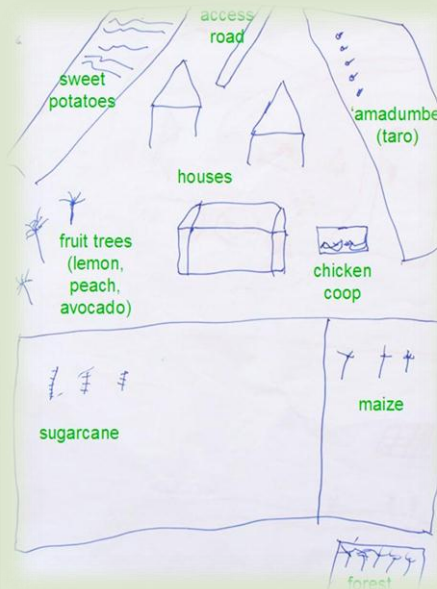 access
road
sweet
potatoes
'amadumbe
(taro)
houses
fruit trees
(lemon,
peach,
avocado)
chicken
coop
sugarcane
maize
forest